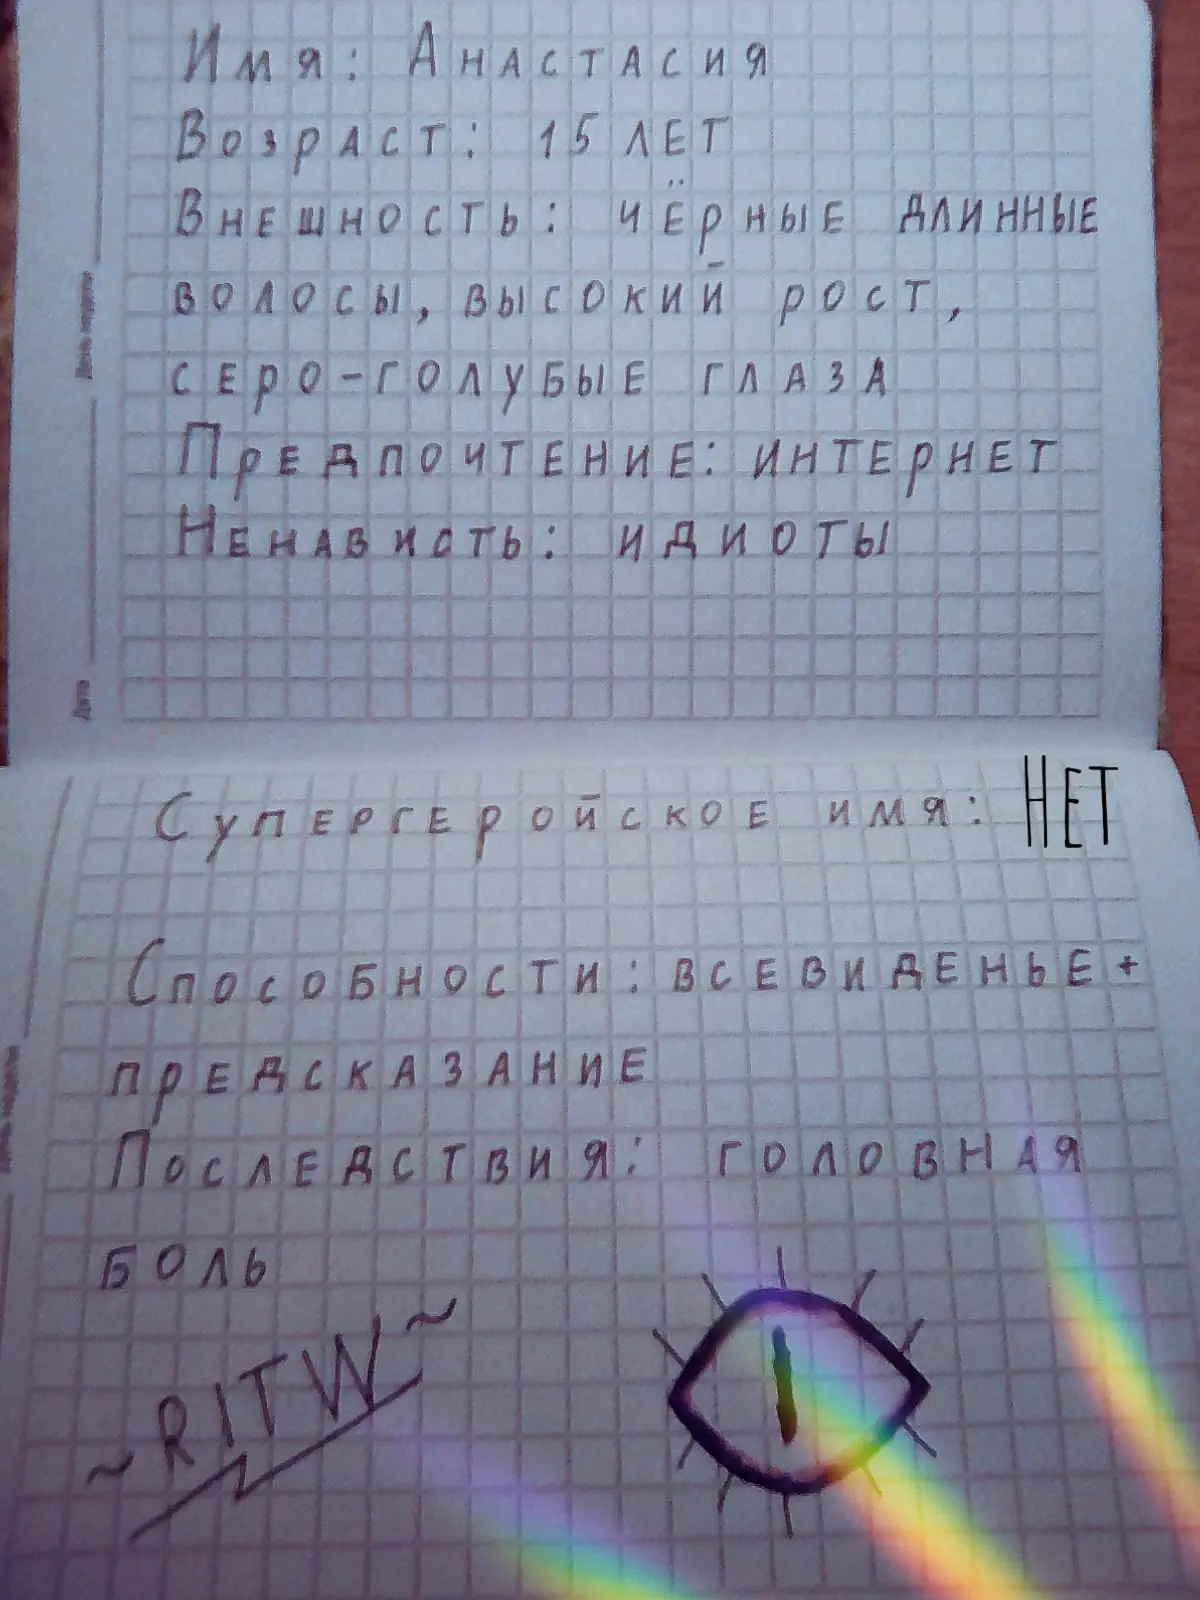 Имя: Анастасия
Возраст: 15 лет
Внешность: чёрные длинные
волосы, высокий рост,
серо-голубые глаза
Предпочтение: интернет
Ненависть: идиоты
День недели
Дата
Супергеройское имя: НЕТ
Способности: всевиденье +
предсказание
Последствия: головная
боль
~RITW~